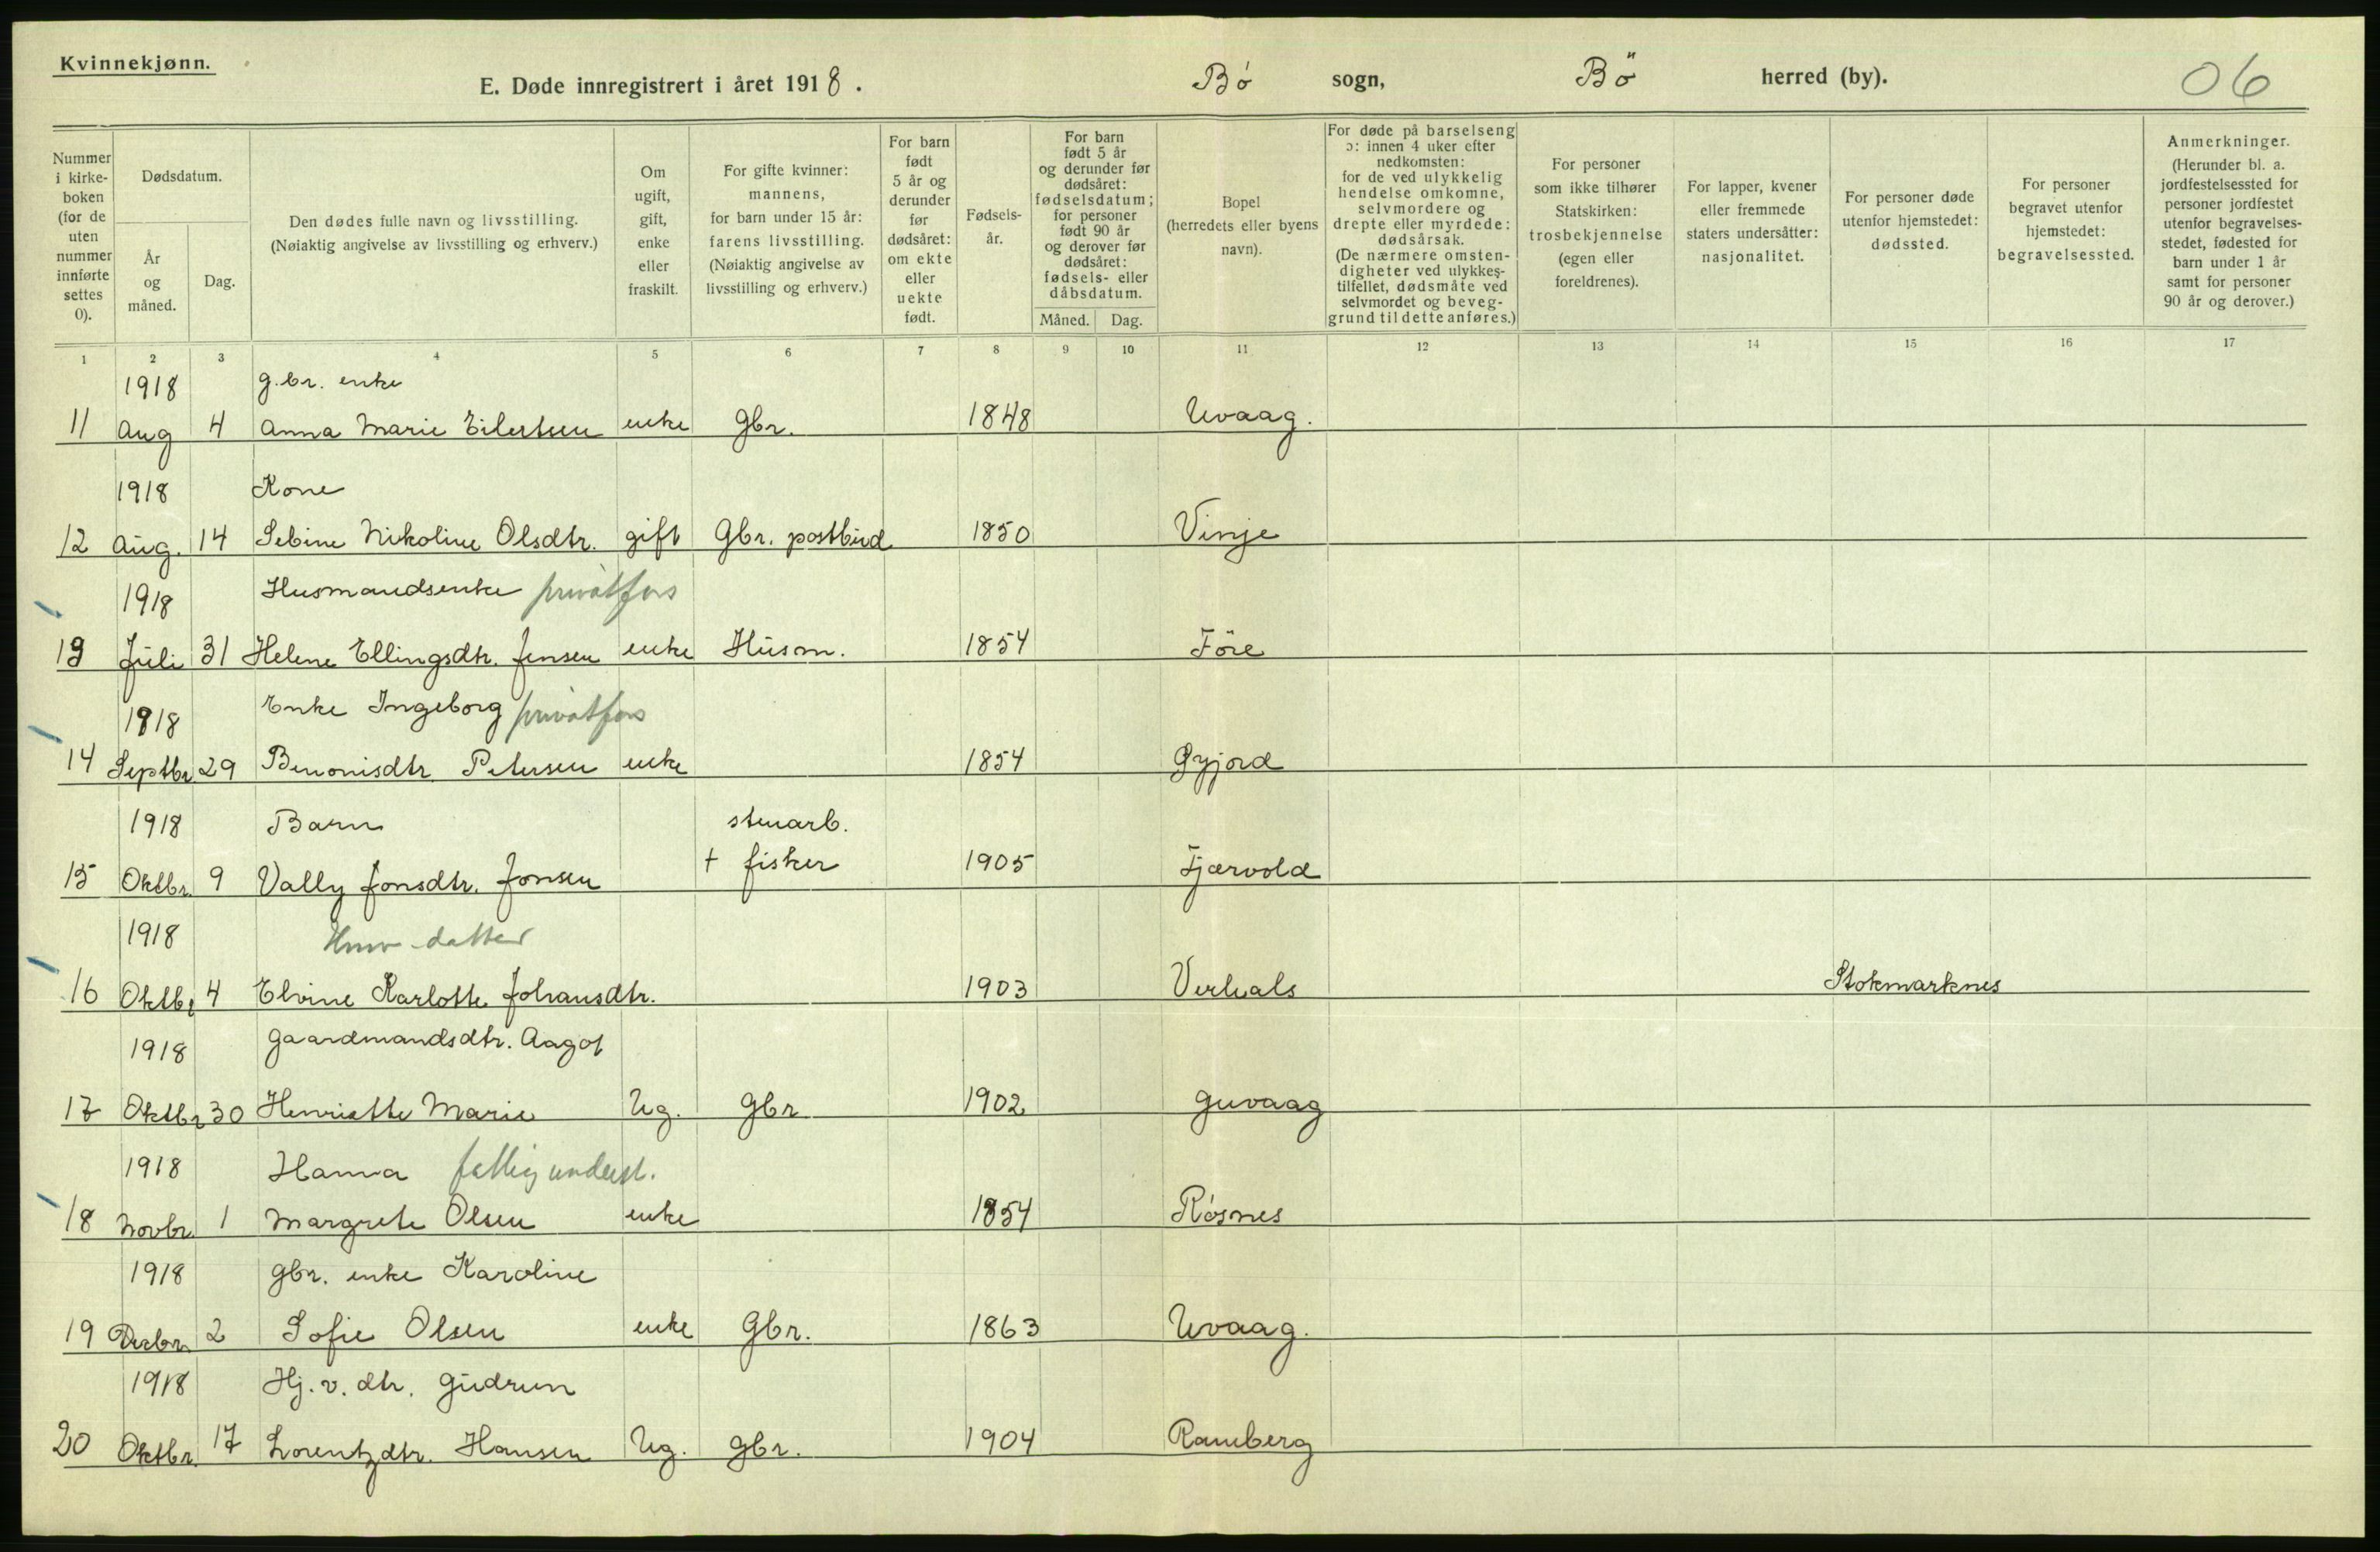 Kvinnekjønn.
E. Døde innregistrert i året 1918. Bø sogn, Bö herred (by). 06
Nummer i kirke-boken (for de uten nummer innførte settes 0).
Dødsdatum.
År og måned.
Dag.
Den dødes fulle navn og livsstilling.
(Nøiaktig angivelse av livsstilling og erhverv.)
Om ugift, gift, enke eller fraskilt.
For gifte kvinner: mannens, for barn under 15 år: farens livsstilling. (Nøiaktig angivelse av livsstilling og erhverv.)
For barn født 5 år og derunder før dødsåret: om ekte eller uekte født.
Fødsels-år.
For barn født 5 år og derunder før dødsåret: fødselsdatum; for personer født 90 år og derover før dødsåret: fødsels- eller dåbsdatum.
Måned. Dag.
Bopel (herredets eller byens navn).
For døde på barselseng ɔ: innen 4 uker efter nedkomsten: for de ved ulykkelig hendelse omkomne, selvmordere og drepte eller myrdede: dødsårsak. (De nærmere omsten-digheter ved ulykkes-tilfellet, dødsmåte ved selvmordet og beveg-grund til dette anføres.)
For personer som ikke tilhører Statskirken: trosbekjennelse (egen eller foreldrenes).
For lapper, kvener eller fremmede staters undersåtter: nasjonalitet.
For personer døde utenfor hjemstedet: dødssted.
For personer begravet utenfor hjemstedet: begravelsessted.
Anmerkninger. (Herunder bl. a. jordfestelsessted for personer jordfestet utenfor begravelses-stedet, fødested for barn under 1 år samt for personer 90 år og derover.)
1 2 3 4 5 6 7 8 9 10 11 12 13 14 15 16 17
1918 g.br. enke
11 Aug 4 Anna Marie Eilertsen enke Gbr. 1848 Uvaag.
1918 Kone
12 Aug. 14 Sebine Nikoline Olsdtr. gift Gbr. postbud 1850 Vinje
1918 Husmandsenke privatfors
13 Juli 31 Helene Ellingsdtr. Jensen enke Husm. 1854 Före
1918 Enke Ingeborg privatfors
14 Septbr 29 Benonisdtr. Petersen enke 1854 Gyjord
1918 Barn stenarb.
15 Oktbr. 9 Vally Jonsdtr. Jonsen + fisker 1905 Fjærvold
1918 datter
16 Oktbr 4 Elvine Karlotte Johansdtr. 1903 Verhals Stokmarknes
1918 Gaardmandsdtr. Aagot
17 Oktbr 30 Henriette Marie Ug. Gbr 1902 Guvaag
1918 Hanna fattigunderst.
18 Novbr 1 Margrete Olsen enke 1854 Røsnes
1918 Gbr. enke Karoline
19 Desbr. 2 Sofie Olsen enke Gbr. 1863 Uvaag.
1918 Hj. v. dtr. Gudrun
20 Oktbr. 17 Lorentzdtr. Hansen Ug. gbr. 1904 Ramberg